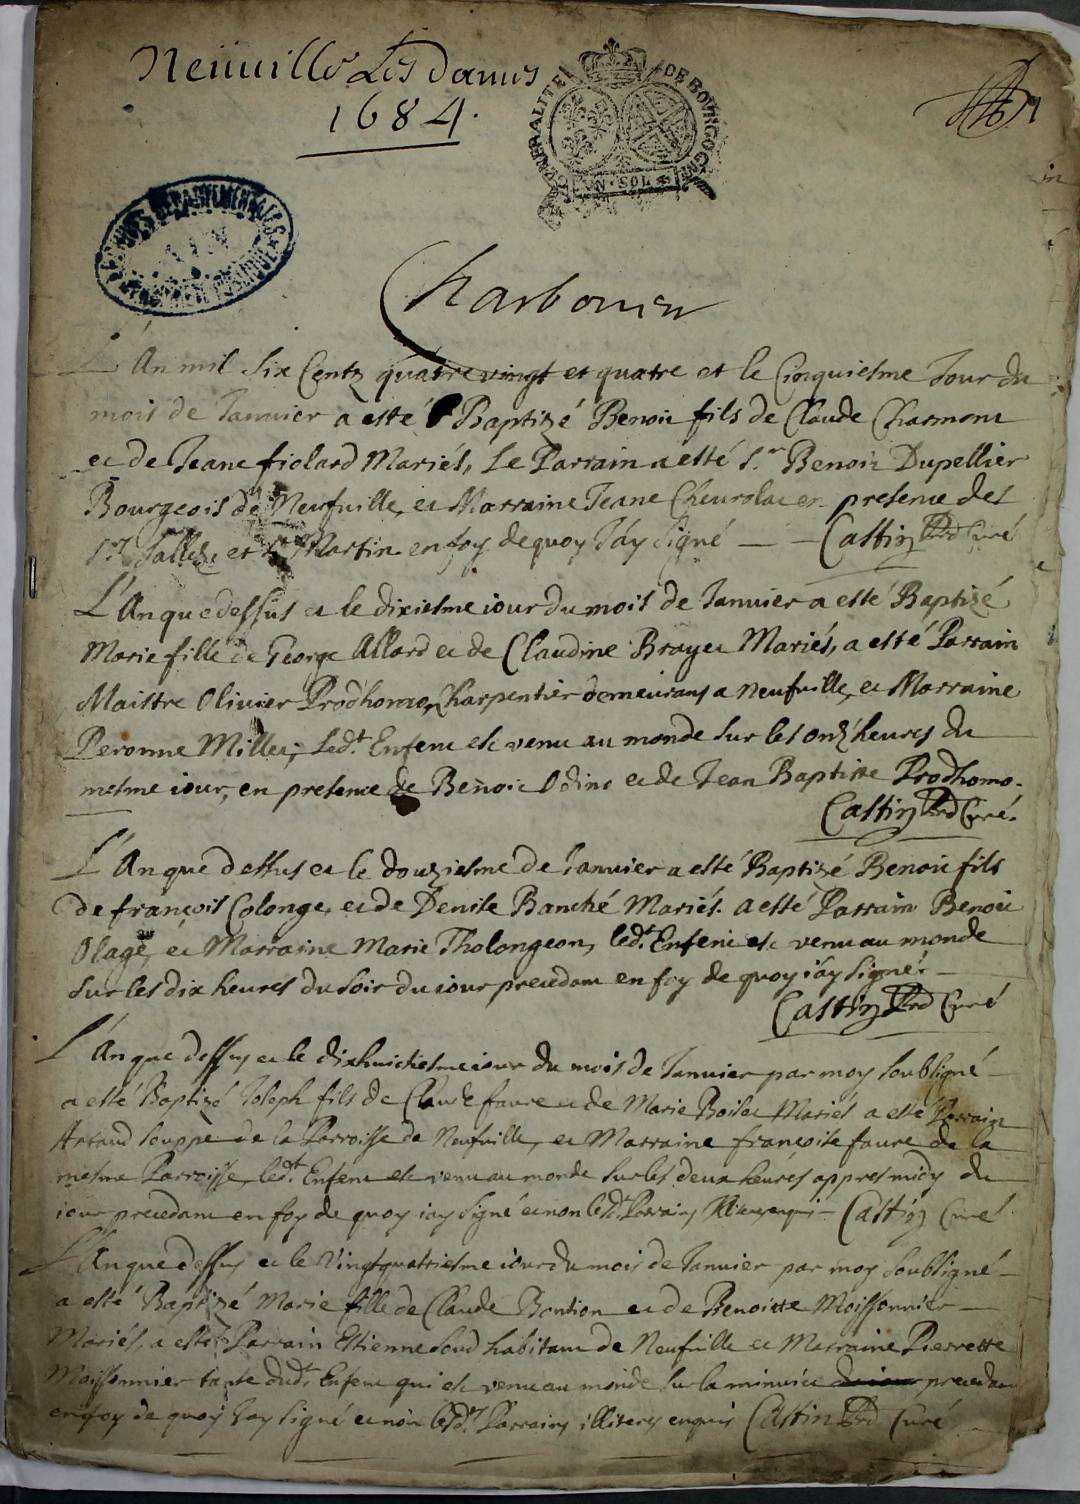 Neüuille Les dames
1684.
GENERALITE DE BOURGOGNE
VN · SOL
ARCHIVES DEPARTEMENTALES
AIN
Charbonier
L'An mil Six Centz quatre vingt et quatre et le Cinquiesme Jour du
mois de Januier a esté Baptizé Benoit fils de Claude Charmont
et de Jeane fiolard Mariés, Le Parrain a esté S.r Benoit Dupellier
Bourgeois de Neufuille, et Marraine Jeane en presence des
Martin en foy de quoy J'ay Signé — — Castin Curé
L'An que dessus et le dixiesme iour du mois de Januier a esté Baptizé
Marie fille de George Allard et de Claudine Brayet Mariés, a esté Parrain
Maistre Oliuier Prodhome, Charpentier demeurant a Neufuille, et Marraine
Peronne Millet, Led.t Enfent est venu au monde sur les onz'heures du
mesme iour, en presence de Benoit Odins et de Jean Baptiste Prodhome.
Castin Curé.
L'An que dessus et le douziesme de Januier a esté Baptizé Benoit fils
de françois Colonge, et de Denise Banché Mariés. a esté Parrain Benoit
Olage, et Marraine Marie Tholongeon, led.t Enfent est venu au monde
sur les dix heures du soir du iour precedant en foy de quoy i'ay signé —
Castin Curé
L'An que dessus et le dixhuictiesme iour du mois de Januier par moy soubsigné —
a esté Baptizé Joseph fils de Claude faure et de Marie Boilet Mariés a esté Parrain
Antaud souppe de la Parroisse de Neufuille, et Marraine françoise faure de la
mesme Parroisse, led.t Enfent est venu au monde sur les deux heures appres midy du
iour precedant en foy de quoy i'ay signé et non lesd. Parrains enquis — Castin Curé
L'An que dessus et le Vingtquatriesme iour du mois de Januier par moy soubsigné —
a esté Baptizé Marie fille de Claude Bontion et de Benoitte Moissonnier —
Mariés, a esté Parrain Estienne habitant de Neufuille et Marraine Pierrette
Moissonnier tante dud.t Enfent qui est venu au monde sur la minuict du iour precedant
en foy de quoy J'ay signé et non lesd. Parrains illiteres enquis Castin Curé